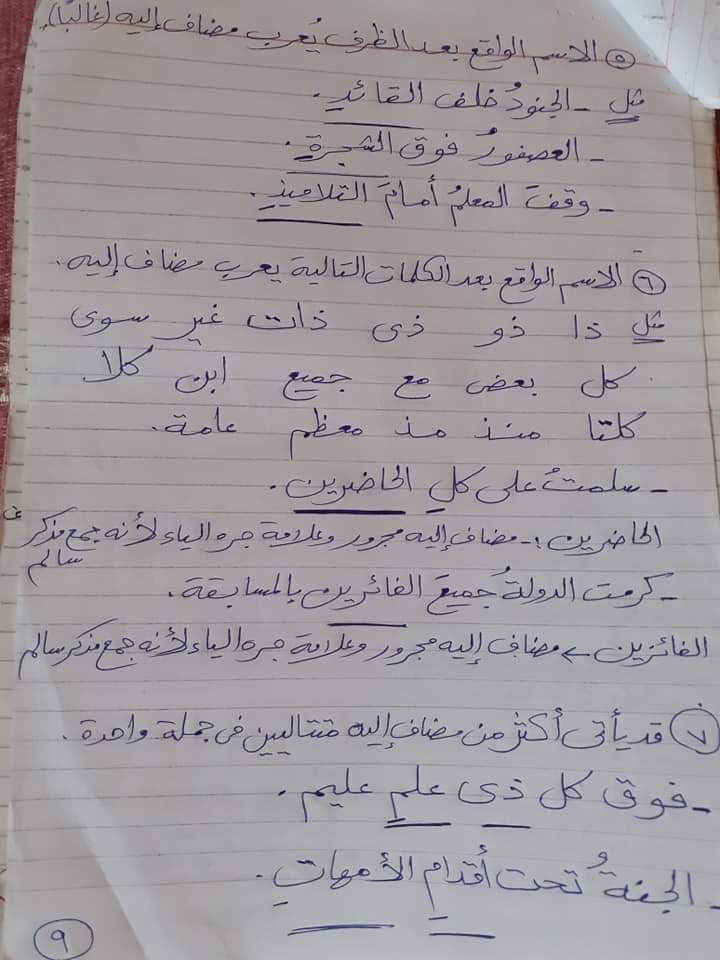 ٥ الاسم الواقع بعد الظرف يُعرب مضاف إليه (غالبًا).
مثل - الجنودُ خلف القائدِ.
- العصفورُ فوق الشجرةِ.
- وقفَ المعلمُ أمامَ التلاميذِ.
٦ الاسم الواقع بعد الكلمات التالية يعرب مضاف إليه.
مثل ذا ذو ذى ذات غير سوى
كل بعض مع جميع ابن كلا
كلتا منذ مذ معظم عامة.
- سلمتُ على كلِ الحاضرين.
الحاضرين :- مضاف إليه مجرور وعلامة جره الياء لأنه جمع مذكر
سالم
- كرمت الدولةُ جميعَ الفائزين بالمسابقة.
الفائزين ← مضاف إليه مجرور وعلامة جره الياء لأنه جمع مذكر سالم
٧ قد يأتى أكثر من مضاف إليه متتاليين فى جملة واحدة.
- فوق كل ذى علمٍ عليم.
- الجنةُ تحت أقدامِ الأمهاتِ.
٩